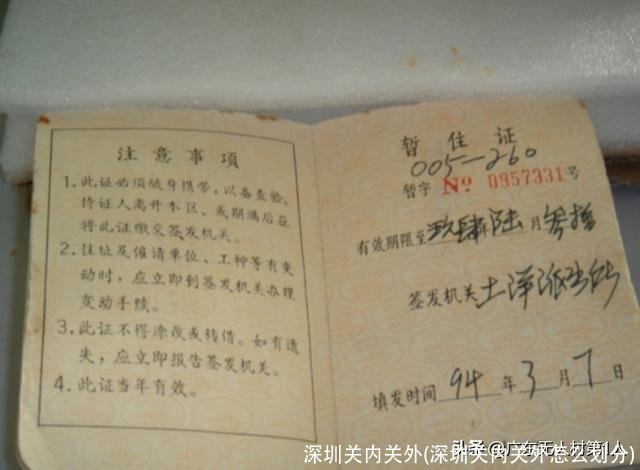 注意事项
1. 此证必须随身携带，以备查验。
持证人离开本区、或期满后应
将此证缴交签发机关。
2. 住址及雇请单位、工种等有变
动时，应立即到签发机关办理
变动手续。
3. 此证不得涂改或转借。如有遗
失，应立即报告签发机关。
4. 此证当年有效。
暂住证
005—260
暂字 No 0957331号
有效期限至玖肆年陆月叁拾
签发机关土洋派出所
填发时间 94 年 3 月 7 日
头条@广东无人村第1人
深圳关内关外(深圳关内关外怎么划分)